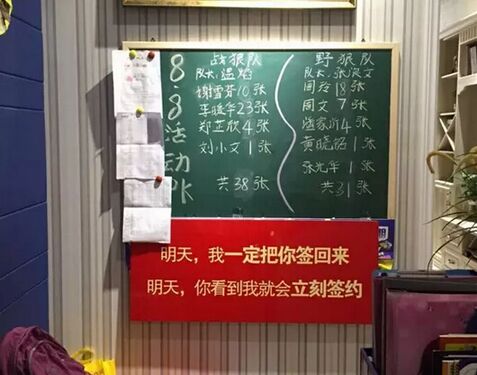 8.8活动PK
战狼队
队长:温焰
谢雪芬10张
李晓华23张
郑芷欣4张
刘小文1张
共38张
野狼队
队长:张淑文
周玲18张
周文7张
潘家沂4张
黄晓铭1张
张光华1张
共31张
明天，我一定把你签回来
明天，你看到我就会立刻签约